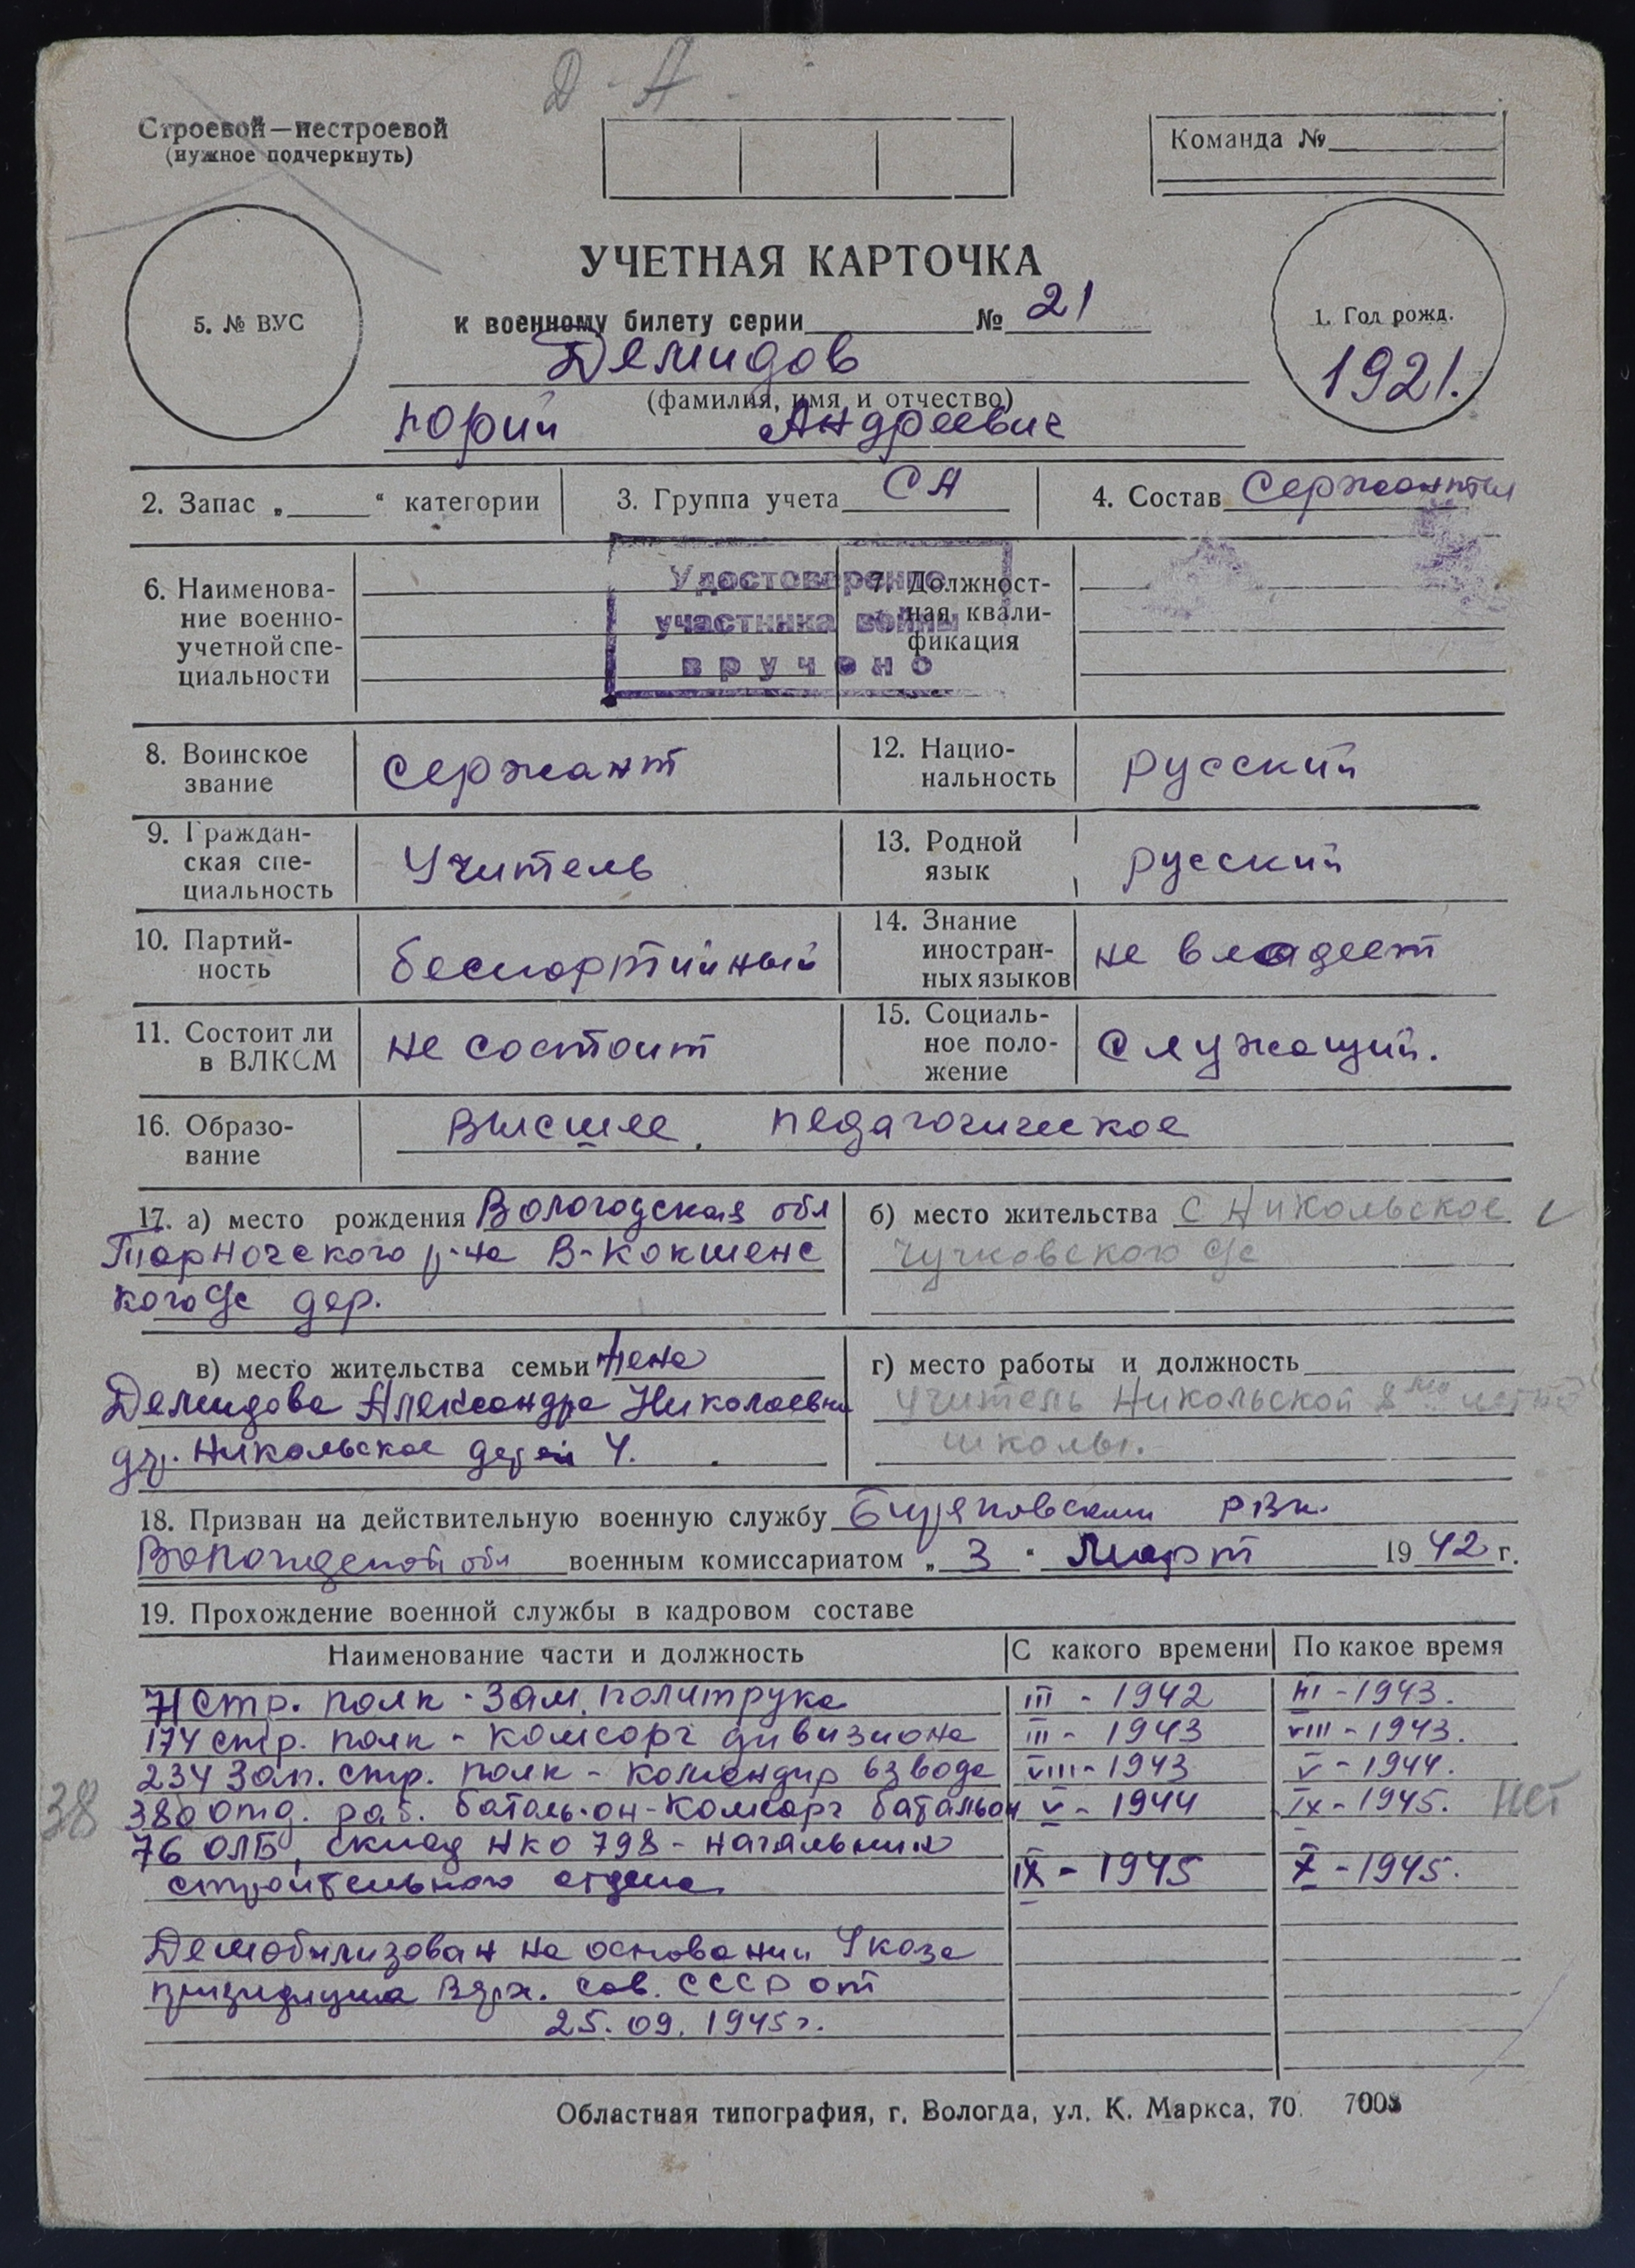 Д - А -
Строевой — нестроевой
(нужное подчеркнуть)
Команда №
5. № ВУС
УЧЕТНАЯ КАРТОЧКА
к военному билету серии № 21
1. Год рожд.
1921.
Демидов
(фамилия, имя и отчество)
Юрий Андреевич
2. Запас „ “ категории
3. Группа учета СА
4. Состав Сержанты
6. Наименова-
ние военно-
учетной спе-
циальности
Удостоверение
участника войны
вручено
7. Должност-
ная квали-
фикация
8. Воинское
звание
сержант
12. Нацио-
нальность
русский
9. Граждан-
ская спе-
циальность
Учитель
13. Родной
язык
русский
10. Партий-
ность
беспартийный
14. Знание
иностран-
ных языков
не владеет
11. Состоит ли
в ВЛКСМ
не состоит
15. Социаль-
ное поло-
жение
Служащий.
16. Образо-
вание
высшее, педагогическое
17. а) место рождения Вологодская обл
Тарногского р-на В-Кокшенс
кого с/с дер.
б) место жительства с Никольское
Чучковского с/с
в) место жительства семьи жена
Демидова Александра Николаевна
др. Никольское детей 4.
г) место работы и должность
учитель Никольской 8 летней
школы.
18. Призван на действительную военную службу Биряковским РВк.
Вологодской обл военным комиссариатом „ 3 “ Март 1942 г.
19. Прохождение военной службы в кадровом составе
Наименование части и должность С какого времени По какое время
71 стр. полк - зам. политрука III - 1942 III - 1943.
174 стр. полк - комсорг дивизиона III - 1943 VIII - 1943.
234 Зап. стр. полк - командир взвода VIII - 1943 V - 1944.
38 380 отд. раб. батальон - комсорг батальон V - 1944 IX - 1945. нет
76 ОЛБ, склад НКО 798 - начальник
строительного отдела IX - 1945 X - 1945.
Демобилизован на основании Указа
президиума Верх. Сов. СССР от
25. 09. 1945 г.
Областная типография, г. Вологда, ул. К. Маркса, 70. 7008